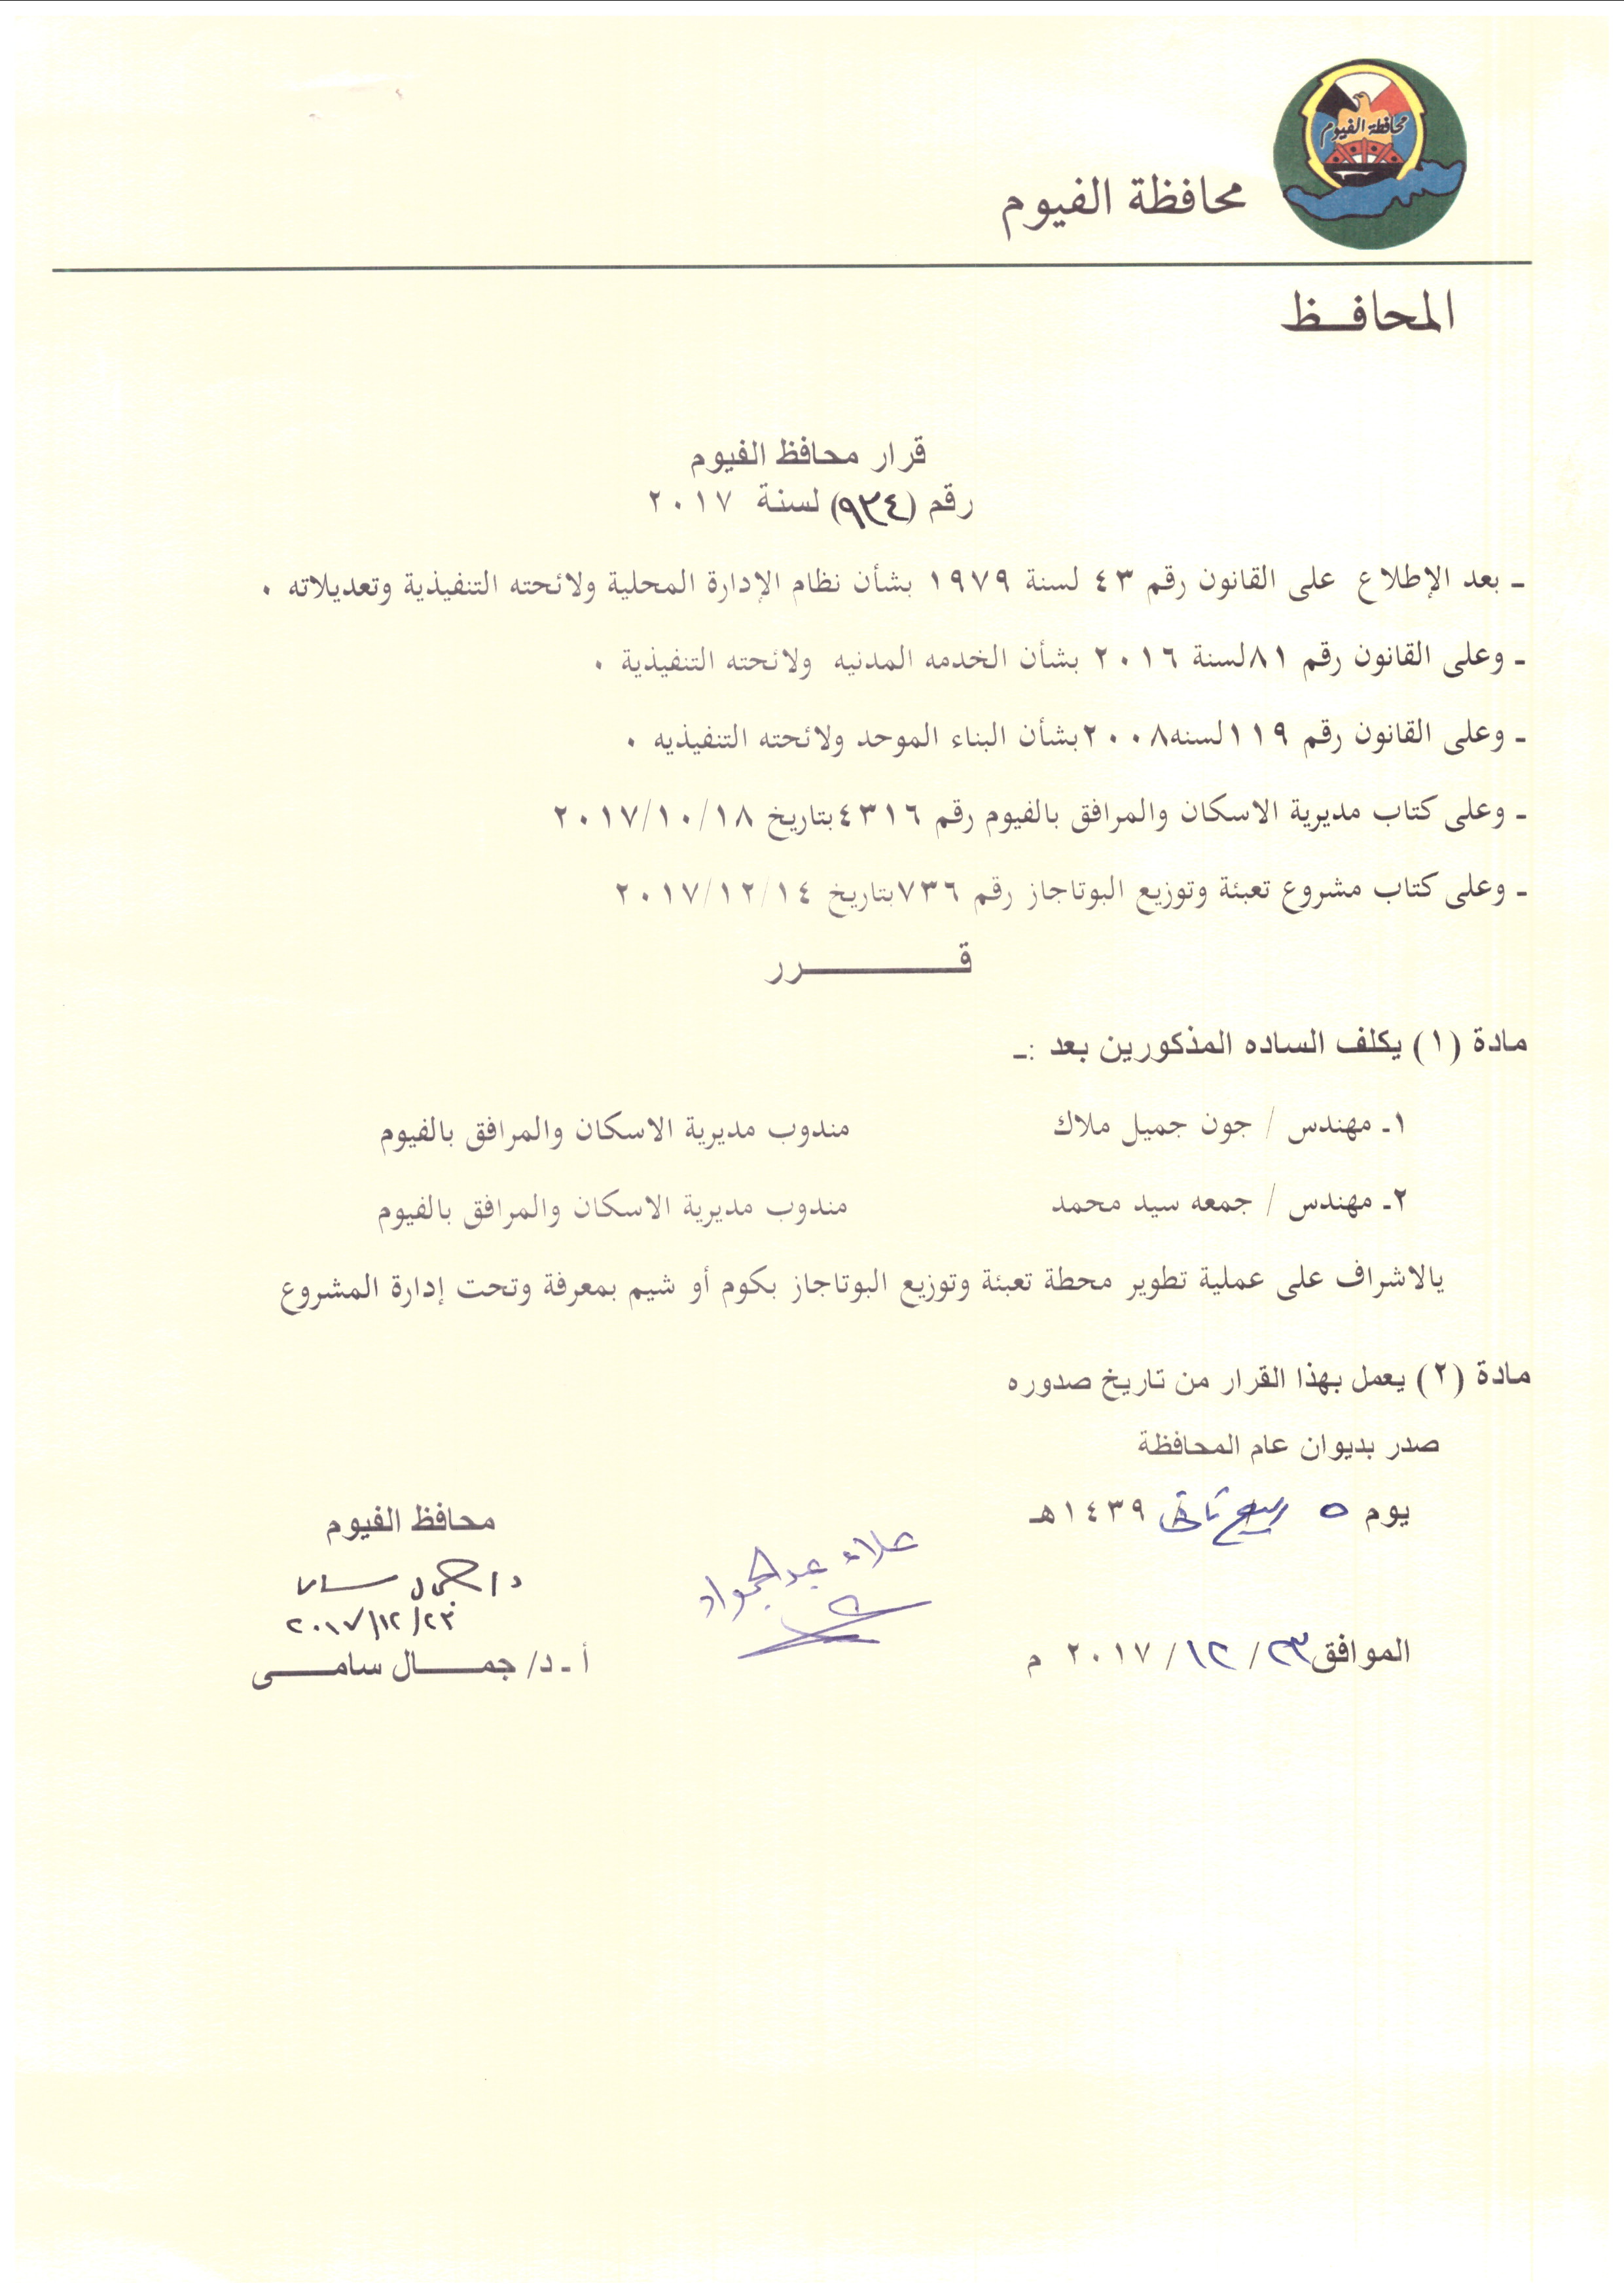 محافظة الفيوم
محافظة الفيوم
المحافـــظ
قرار محافظ الفيوم
رقم (٩٣٤) لسنة ٢٠١٧
ـ بعد الإطلاع على القانون رقم ٤٣ لسنة ١٩٧٩ بشأن نظام الإدارة المحلية ولائحته التنفيذية وتعديلاته ٠
ـ وعلى القانون رقم ٨١لسنة ٢٠١٦ بشأن الخدمه المدنيه ولائحته التنفيذية ٠
ـ وعلى القانون رقم ١١٩لسنه٢٠٠٨بشأن البناء الموحد ولائحته التنفيذيه ٠
ـ وعلى كتاب مديرية الاسكان والمرافق بالفيوم رقم ٤٣١٦بتاريخ ٢٠١٧/١٠/١٨
ـ وعلى كتاب مشروع تعبئة وتوزيع البوتاجاز رقم ٧٣٦بتاريخ ٢٠١٧/١٢/١٤
قـــــــــرر
مادة (١) يكلف الساده المذكورين بعد :ـ
١ـ مهندس / جون جميل ملاك مندوب مديرية الاسكان والمرافق بالفيوم
٢ـ مهندس / جمعه سيد محمد مندوب مديرية الاسكان والمرافق بالفيوم
يالاشراف على عملية تطوير محطة تعبئة وتوزيع البوتاجاز بكوم أو شيم بمعرفة وتحت إدارة المشروع
مادة (٢) يعمل بهذا القرار من تاريخ صدوره
صدر بديوان عام المحافظة
يوم ٥ ربيع ثاني ١٤٣٩هـ
محافظ الفيوم
علاء عبد الجواد
د/ جمال سامي
٢٠١٧/١٢/٢٣
الموافق٢٣/ ١٢/ ٢٠١٧ م
أ ـ د/ جمـــال سامـــى